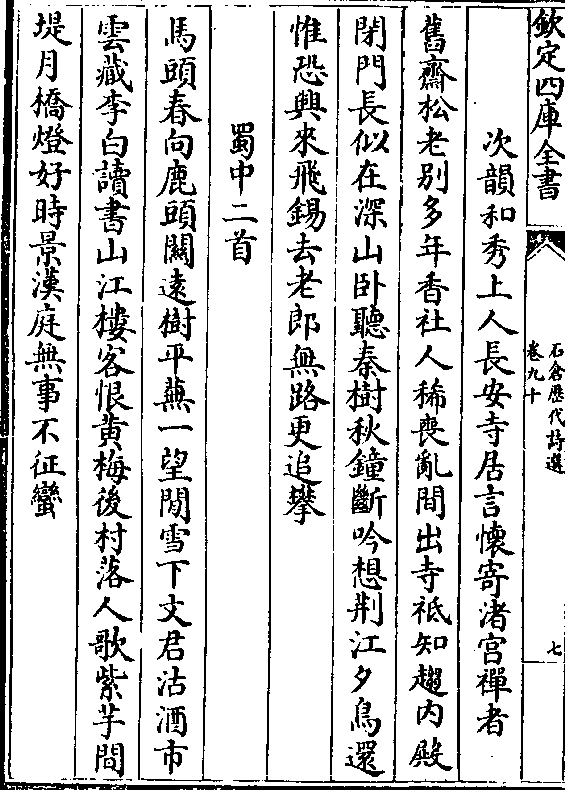 欽定四庫全書
石倉歷代詩選
卷九十
七
次韻和秀上人長安寺居言懷寄渚宮禪者
舊齋松老別多年香社人稀喪亂間出寺祇知趨內殿
閉門長似在深山卧聽秦樹秋鐘斷吟想荆江夕鳥還
惟恐興來飛錫去老郎無路更追攀
蜀中二首
馬頭春向鹿頭關逺樹平蕪一望閒雪下文君沽酒市
雲藏李白讀書山江樓客恨黄梅後村落人歌紫芋間
堤月橋燈好時景漢庭無事不征蠻